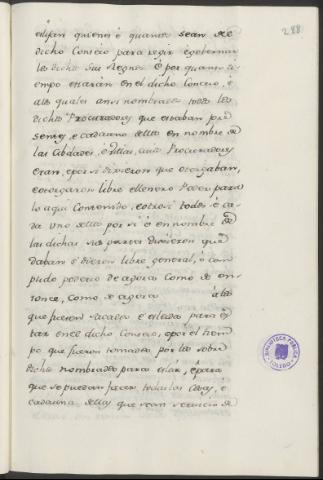 288
é digan quienes é quantos sean del
dicho Consejo para regir é gobernar
los dichos sus Regnos é por quanto ti
empo estarán en el dicho Consejo, é
á los quales ansí nombrados todos los
dichos Procuradores que estaban pre
sentes, é cada uno dellos en nombre de
las Cibdades, é Villas, cuios Procuradores
eran, e por sí dixieron que otorgaban,
é otorgaron libre é llenero Poder para
lo aqui contenido, é otrosí todos é ca
da uno dellos por sí é en nombre de
las dichas sus partes dixieron que
daban é dieron libre general, é com
plido poderio de agora como de en
tonce, como de agora á los
que fueren sacados é esleidos para es
tar en el dicho Consejo, e por el tiem
po que fueren tomados por los sobre
dichos nombrados para estar, e para
que se puedan facer todas las cosas, é
cada una dellas que sean servicio de
BIBLIOTECA PUBLICA
TOLEDO